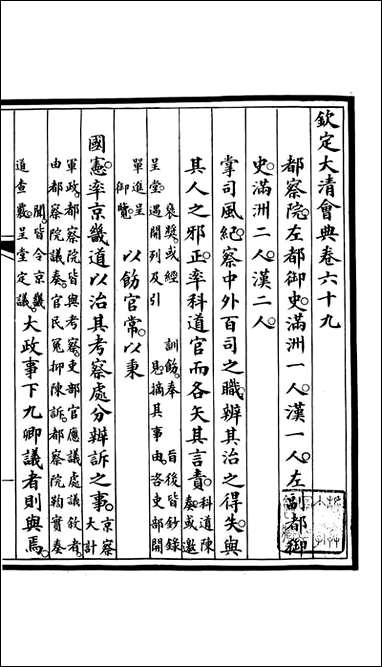 欽定大清會典卷六十九
都察院。左都御史。滿洲一人。漢一人。左副都御
史。滿洲二人。漢二人。
掌司風紀。察中外百司之職。辨其治之得失。與
其人之邪正。率科道官而各矢其言責。科道陳
奏或邀
褒獎。或經 訓飭。奉 旨後皆鈔錄
呈堂。遇開列及引 見。摘其事由。咨吏部開
單進呈
御覽。 以飭官常。以秉
國憲。率京畿道以治其考察處分辦訴之事。京察
大計
軍政。都察院皆與考察。吏部官應議處議敘者。
由都察院議奏。官民冤抑陳訴。都察院鞫實奏
聞。皆令京畿
道查覈。呈堂定議。大政事下九卿議者則與焉。